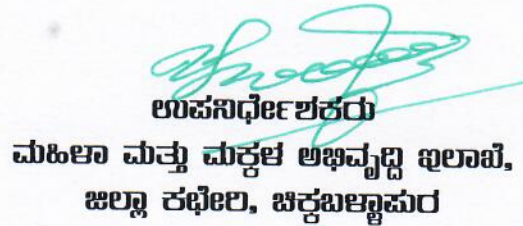 ಉಪನಿರ್ಧೇಶಕರು
ಮಹಿಳಾ ಮತ್ತು ಮಕ್ಕಳ ಅಭಿವೃದ್ಧಿ ಇಲಾಖೆ,
ಜಿಲ್ಲಾ ಕಛೇರಿ, ಚಿಕ್ಕಬಳ್ಳಾಪುರ